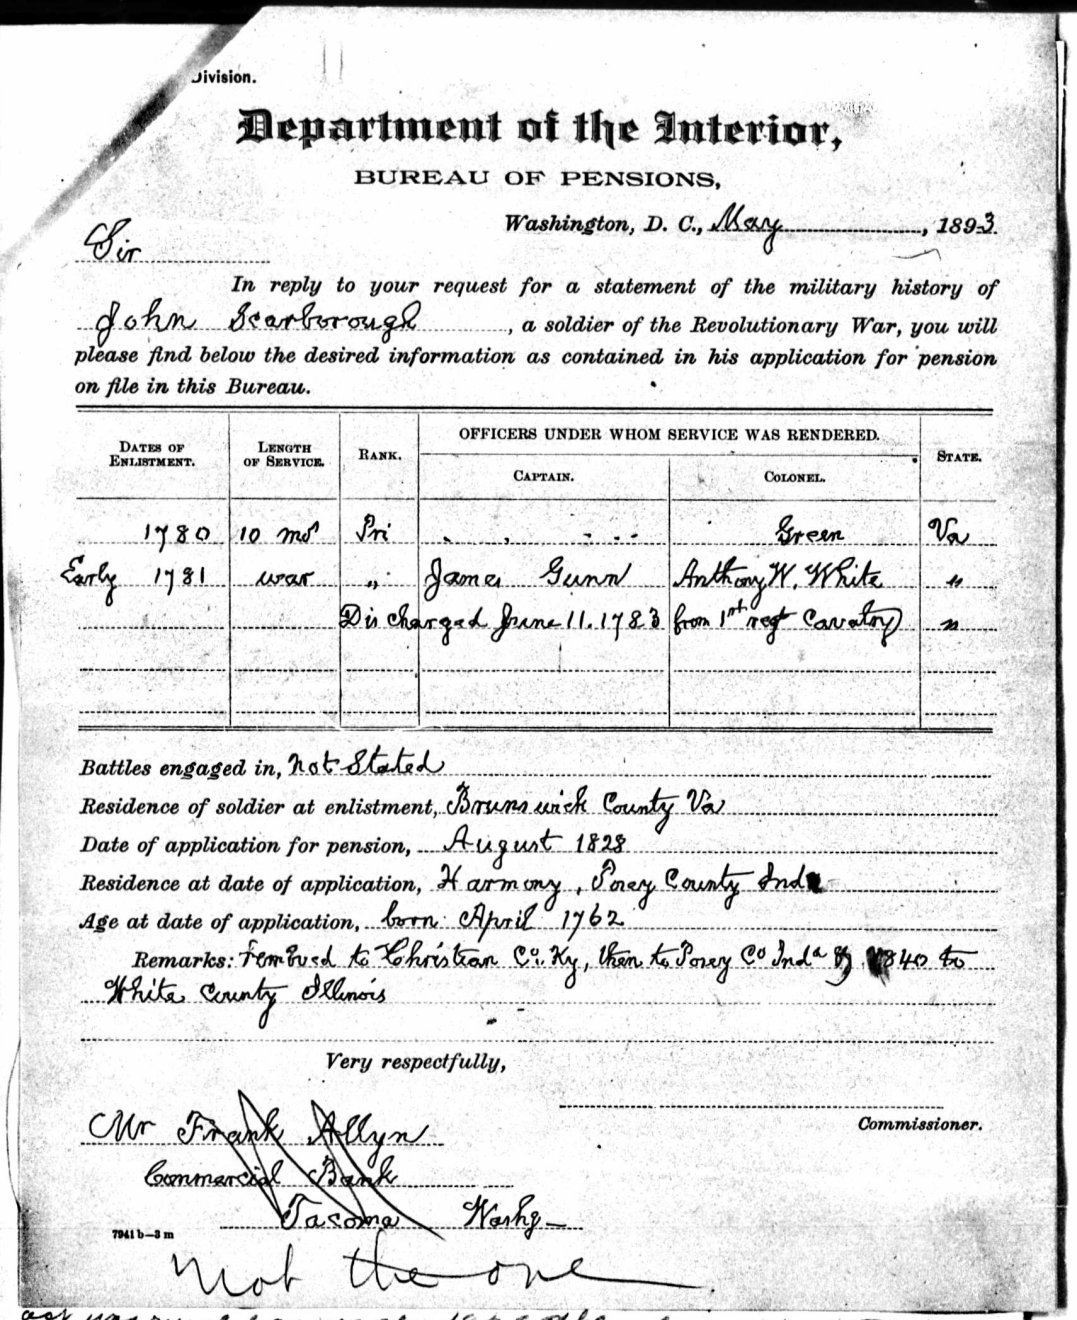 Division.
Department of the Interior,
BUREAU OF PENSIONS,
Washington, D. C., May , 1893.
Sir
In reply to your request for a statement of the military history of
John Scarborough , a soldier of the Revolutionary War, you will
please find below the desired information as contained in his application for pension
on file in this Bureau.
DATES OF ENLISTMENT. LENGTH OF SERVICE. RANK. OFFICERS UNDER WHOM SERVICE WAS RENDERED. STATE.
CAPTAIN. COLONEL.
1780 10 mos Pri Green Va
Early 1781 war " James Gunn Anthony W. White "
Discharged June 11. 1783 from 1st regt Cavalry "
Battles engaged in, not Stated
Residence of soldier at enlistment, Brunswick County Va
Date of application for pension, August 1828
Residence at date of application, Harmony, Posey County Inda
Age at date of application, born April 1762
Remarks: removed to Christian Co. Ky, then to Posey Co Inda 1840 to
White County Illinois
Very respectfully,
Commissioner.
Mr Frank Allyn
Commercial Bank
Tacoma Washg—
7941 b—3 m
Not the one